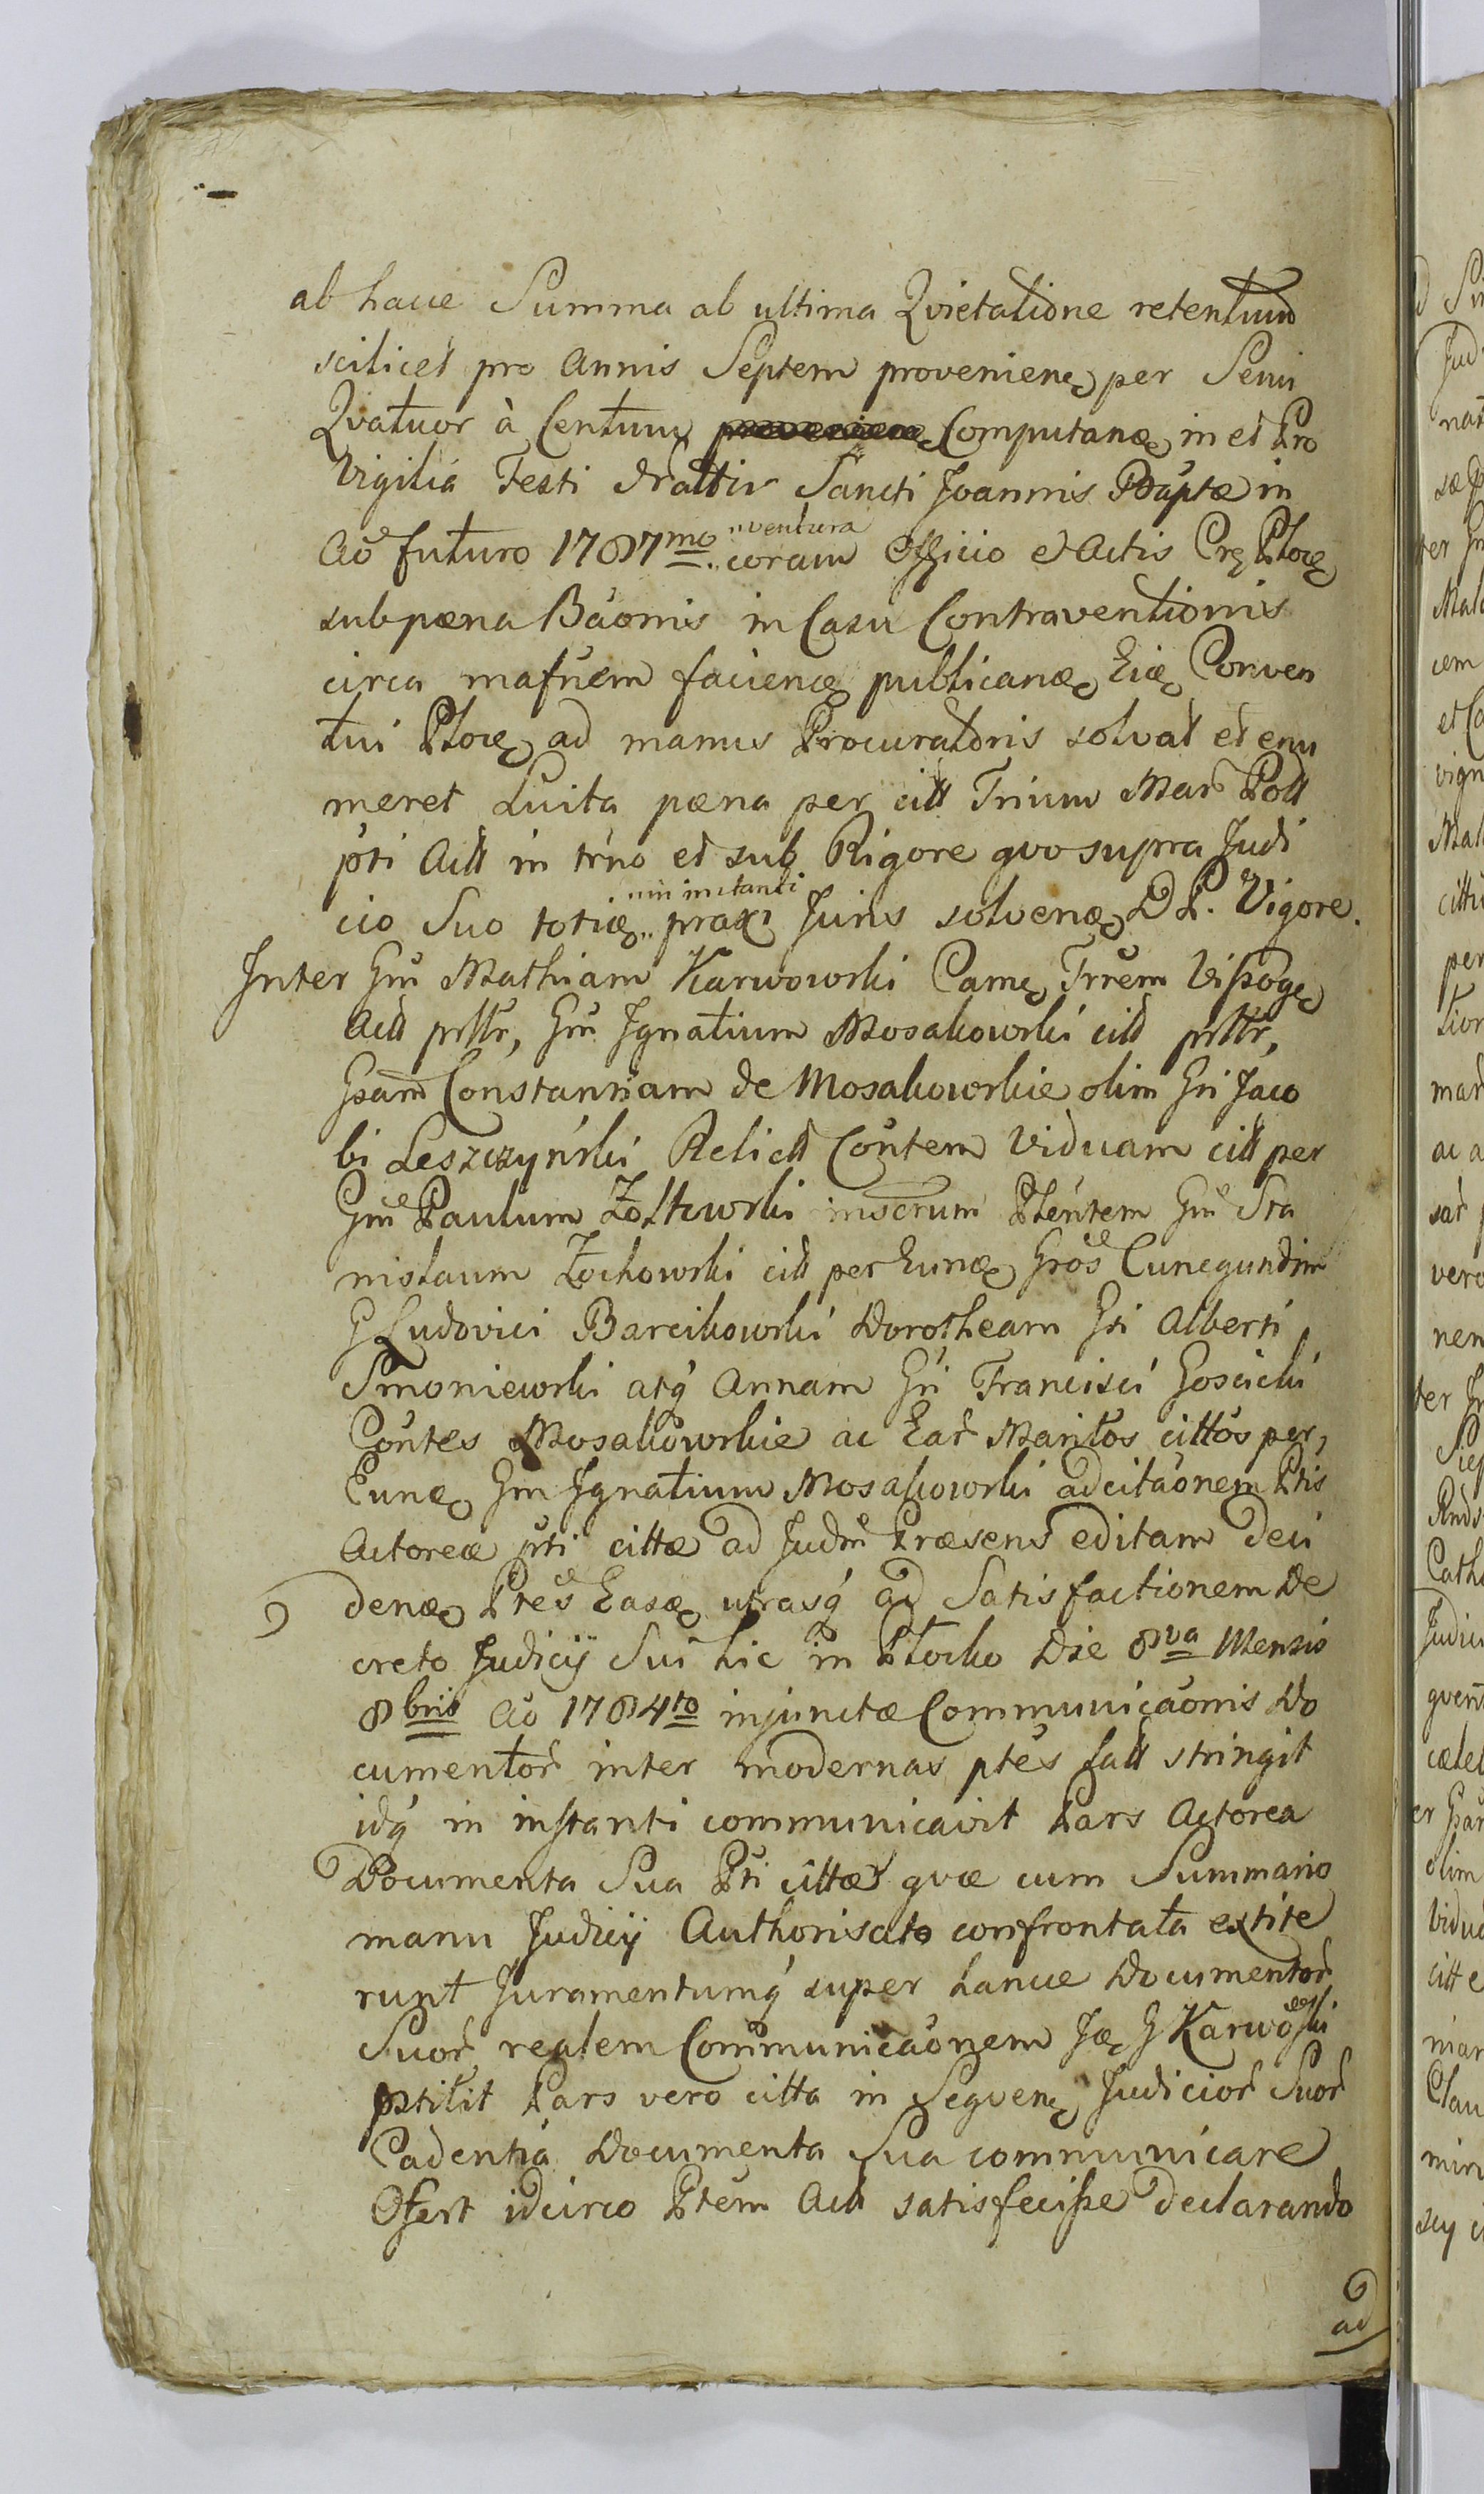 ab hace Summa ab ultima Qvietatione retentum
scilicet pro Annis Septem provenienę per Semi
Qvatuor à Centum Computanę in et Pro
Vigilia Festi Nattiv Sancti Joannis Baptæ in
Aõ futuro 1787mo ventura coram Officio et Actis Crę Plocę
sub pæna Bãonis in Casu Contraventionis
circa mafnem facienę publicanę Eię Conven
tui Plocę ad manus Procuratoris solvat et enu
meret Luita pæna per citt Trium Mar Poll
pti Actt in trno et sub Rigore qvo supra Judi
cio Suo totię in instanti praxi Juris solvenę D P. Vigore.
Inter Gm Mathiam Karwowski Camę Trrem Vissogę
Actt prttr, Gm Ignatium Mosakowski citt prttr,
Gsam Constantiam de Mosakowskie olim Gri Jaco
bi Leszczyński Relictt Contem Viduam citt per
Gm Paulum Żołtowski inscrum Pltentem Gm Sta
nislaum Żochowski citt per Eunę Gros Cunegundim
G Ludovici Barcikowski Dorotheam Gri Alberti
Smoniewski atq́ Annam Gri Francisci Gościcki
Contes Mosakowskie ac Ear Maritos cittos per
Eunę Gm Ignatium Mosakowski ad citaõnem Ptis
Actoreæ pti cittæ ad Judm Præsens editam Deci
denę Ptes Easę utrasq́ ad Satisfactionem De
creto Judicij Sui hic in Płocko Die 8va Mensis
8bris Aõ 1784to injunctæ Communicaõnis Do
cumentor inter modernas ptes fatt stringit
idq́ in instanti communicavit Pars Actorea
Documenta Sua Pti cittæ qvæ cum Summario
manu Judicij Authorisato confrontata extite
runt Juramentumq́ super hance Documentor
Suor realem Communicaõnem Ję G Karwowski
pstitit Pars vero citta in Seqvenę Judicior Suor
Cadentia Documenta Sua communicare
Ofert idcirco Ptem Actt satisfecisse declarando
ad